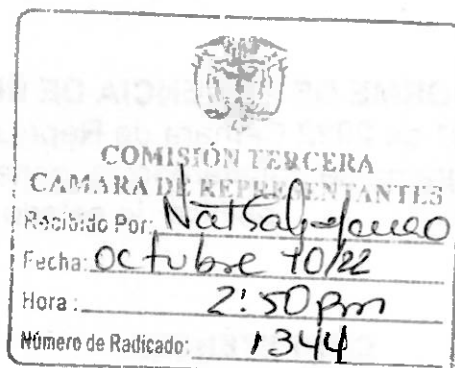 COMISIÓN TERCERA
CAMARA DE REPRESENTANTES
Recibido Por:
Fecha: Octubre 10/22
Hora: 2:50pm
Número de Radicado: 1344